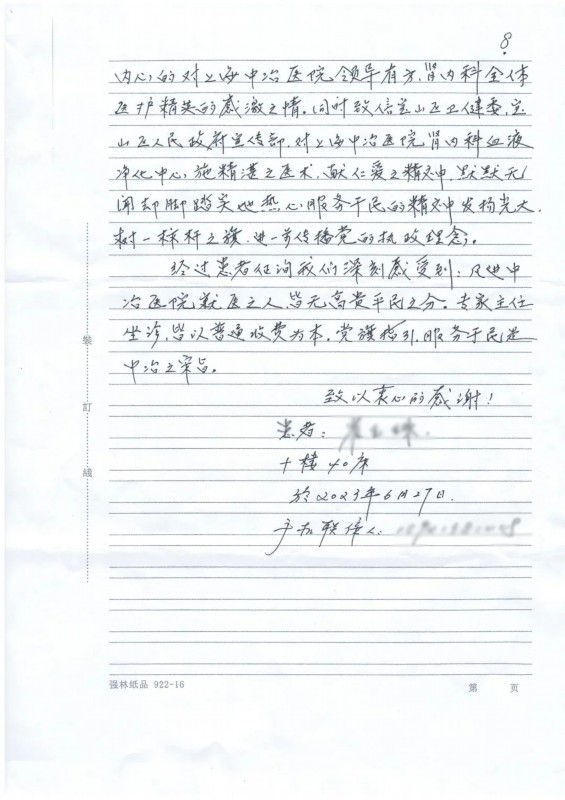 8.
内心的对上海中冶医院领导有方,肾内科全体
医护精英的感激之情。同时致信宝山区卫健委,宝
山区人民政府宣传部,对上海中冶医院肾内科血液
净化中心,施精湛之医术,献仁爱之精神,默默无
闻却脚踏实地热心服务于民的精神发扬光大,
树一标杆之旗,进一步传播党的执政理念。
经过患者住询我们深刻感受到:凡进中
冶医院就医之人,皆无高贵平民之分。专家主任
坐诊,皆以普通收费为本。党旗指引,服务于民是
中冶之宗旨。
致以衷心的感谢!
患者:
十楼40床
於2023年6月27日.
联系人:
装
订
线
强林纸品 922-16
第 页